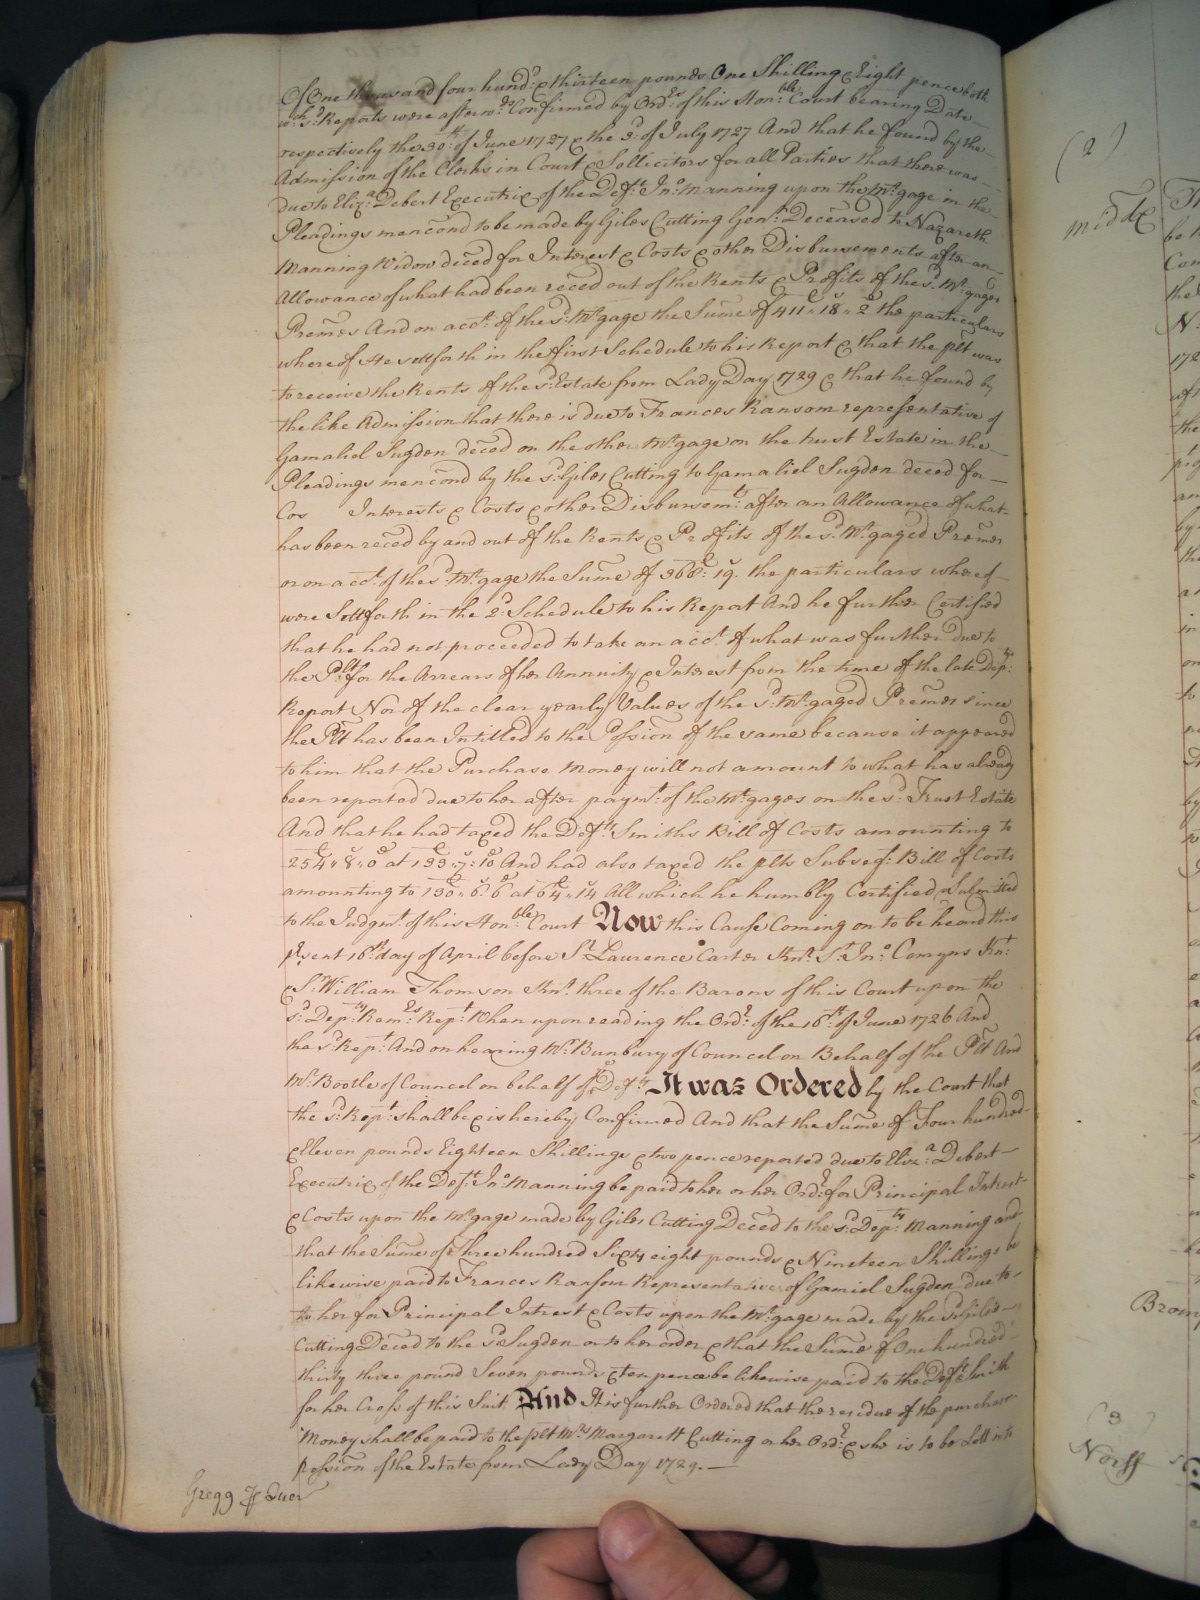 Of One thousand four hund:d & thirteen pounds One Shilling & Eight pence both
w:ch s:d Reports were afterw:ds Confirmed by Ord:rs of this Hon:ble Court bearing Date
respectively the 30:th of June 1727 & the 3:d of July 1727 And that he found by the
Admission of the Clerks in Court & Sollicitors for all Parties that there was
due to Eliz:a Debert Executrix of the Def:t Jn:o Manning upon the M:tgage in the
Pleadings menc̃ond to be made by Giles Cutting Gen:t Deceased to Nazareth
Manning Widow dec̃ed for Interest & Costs & other Disbursements after an
Allowance of what had been rec̃ed out of the Rents & Profits of the s:d M:tgages
Prem̃es And on acc:t of the s:d M:tgage the Sum̃e of 411£: 18s: 2d the particulars
whereof He sett forth in the first Schedule to his Report & that the plt was
to receive the Rents of the s:d Estate from Lady Day 1729 & that he found by
the like Admission that there is due to Frances Ransom representative of
Gamaliel Sugden dec̃ed on the other M:tgage on the trust Estate in the
Pleadings menc̃ond by the s:d Giles Cutting to Gamaliel Sugden dec̃ed for
Cos Interests & Costs & other Disbursem:ts after an Allowance of what
has been rec̃ed by and out of the Rents & Profits of the s:d M:tgaged Prem̃es
or on acc:t of the s:d M:tgage the Sum̃e of 368£: 19s. the particulars whereof
were Sett forth in the 2:d Schedule to his Report And he further Certified
that he had not proceeded to take an acc:t of what was further due to
the Plt for the Arrears of her Annuity & Interest from the time of the late Dep:tys
Report Nor of the clear yearly Values of the s:d M:tgaged Prem̃es since
the Plt has been Intitled to the Possion of the same because it appeared
to him that the Purchase Money will not amount to what has already
been reported due to her after paym:t of the M:tgages on the s:d Trust Estate
And that he had taxed the Def:ts Smiths Bill of Costs amounting to
254£: 8s: 0d at 133£: 7s: 10d And had also taxed the plts Subseq:t Bill of Costs
amounting to 130£: 6s: 6d at 64£: 14s All which he humbly Certified & Submitted
to the Judgm:t of this Hon:ble Court Now this Cause Coming on to be heard this
p̃sent 16:th day of April before S:r Laurence Carter Kn:t S:r Jn:o Comyns Kn:t
& S:r William Thomson Kn:t three of the Barons of this Court upon the
s:d Dep:ty Rem:rs Rep:t When upon reading the Ord:r of the 16:th of June 1726 And
the s:d Rep:t And on hearing M:r Bunbury of Councel on Behalf of the Plt And
M:r Bootle of Councel on behalf of Def:ts It was Ordered by the Court that
the s:d Rep:t shall be & is hereby Confirmed And that the Sum̃e of Four hundred
& Eleven pounds Eighteen Shillings & two pence reported due to Eliz:a Debert
Executrix of the Def:t Jn:o Manning be paid to her or her Ord:r for Principal Intrest
& Costs upon the M:tgage made by Giles Cutting Dec̃ed to the s:d Dep:ty Manning and
that the Sum̃e of Three hundred Sixty eight pounds & Nineteen Shillings be
likewise paid to Frances Ransom Representative of Gamiel Sugden due to
to her for Principal Intrest & Costs upon the M:tgage made by the s:d Giles
Cutting Dec̃ed to the s:d Sugden or to her order & that the Sum̃e of One hundred
thirty three pound Seven pounds & ten pence be likewise paid to the Def:t Smith
for her Cross of this Suit And It is further Ordered that the residue of the purchase
Money shall be paid to the plt M:rs Margarett Cutting or her Ord:r & she is to be Lett into
Possion of the Estate from Lady Day 1729.
Gregg p Quer
(2)
Midd̃x
Brom
(3)
Norff